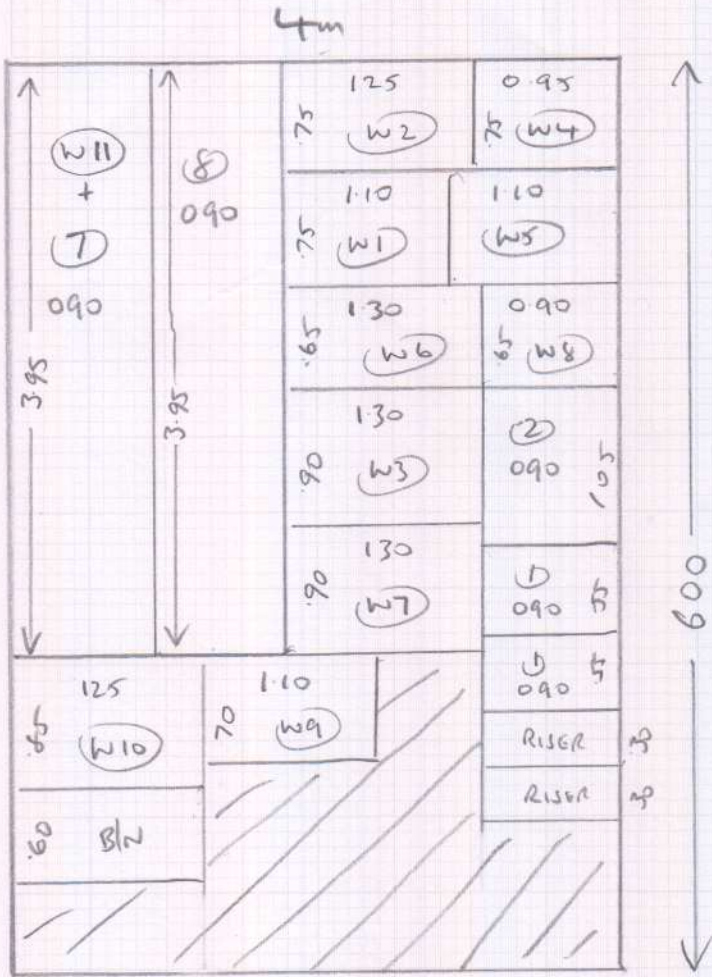 4m
W11
+
7
090
3.95
8
090
3.95
125
.75
W2
0.95
.75
W4
1.10
.75
W1
1.10
W5
1.30
.65
W6
0.90
.65
W8
1.30
.90
W3
2
090
105
130
.90
W7
1
090
55
1
090
55
RISER
30
RISER
30
125
W10
1.10
70
W9
.60
B/N
600